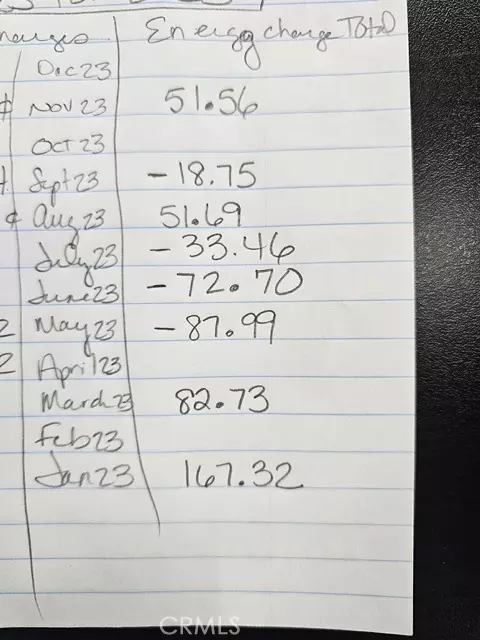 Energy charge Total
Dec 23
Nov 23 51.56
Oct 23
Sept 23 - 18.75
Aug 23 51.69
July 23 - 33.46
June 23 - 72.70
May 23 - 87.99
April 23
March 23 82.73
Feb 23
Jan 23 167.32
CRMLS